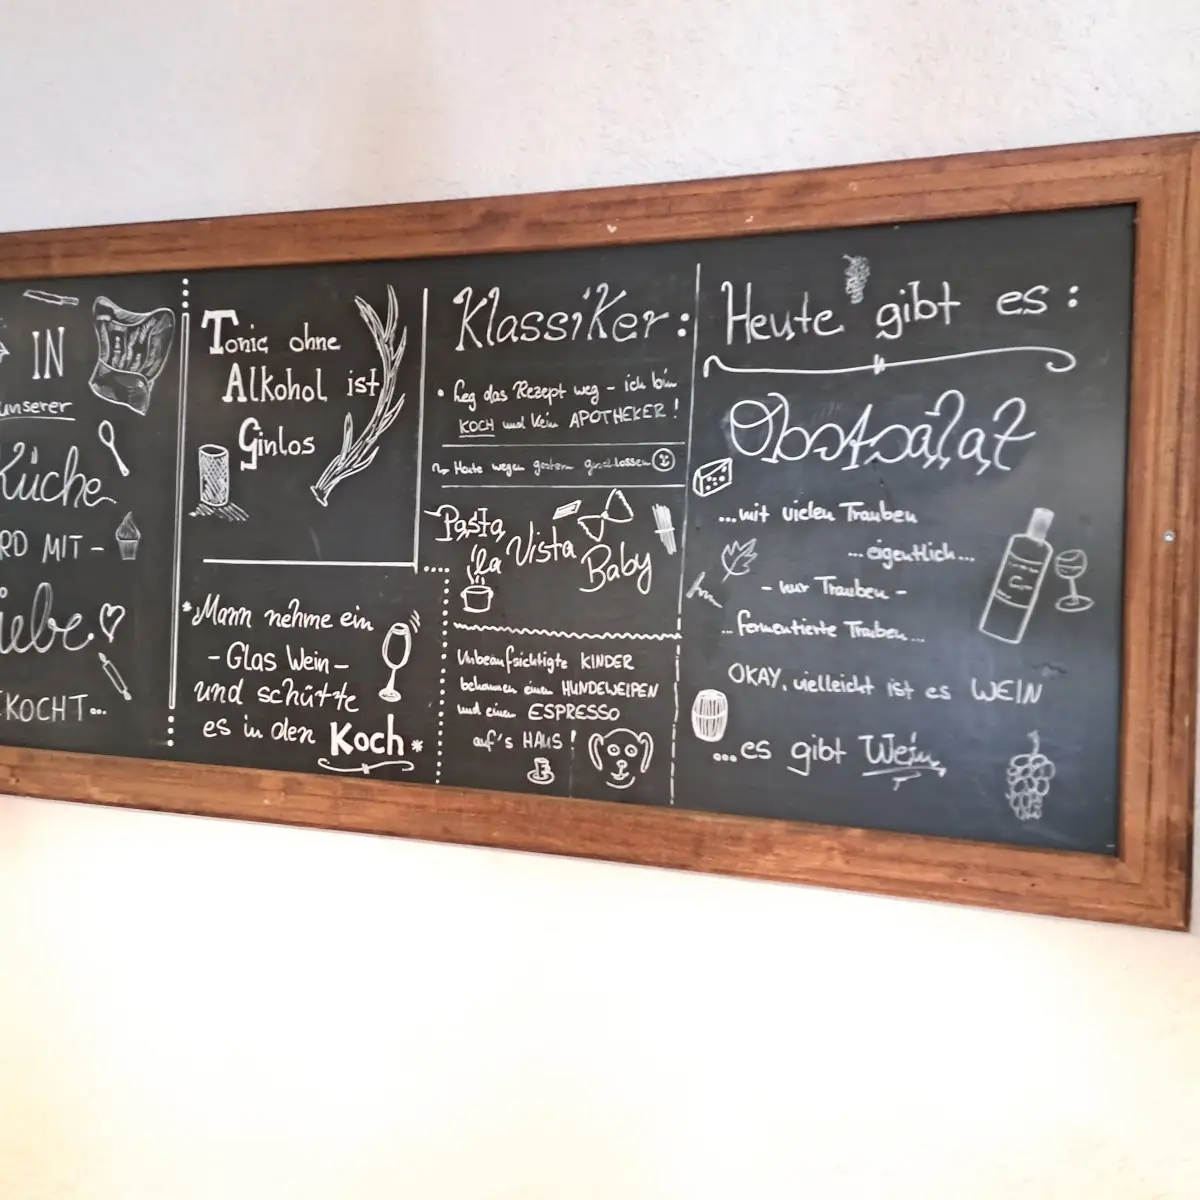 IN
unserer
Küche
RD MIT -
iebe
EKOCHT...
Tonic ohne
Alkohol ist
Ginlos
*Mann nehme ein
- Glas Wein -
und schütte
es in den Koch*
Klassiker:
• Leg das Rezept weg - ich bin
KOCH und kein APOTHEKER!
~ Heute wegen gestern geschlossen
~Pasta
la Vista
Baby
Unbeaufsichtigte KINDER
bekommen einen HUNDEWELPEN
und einen ESPRESSO
auf's HAUS!
Heute gibt es:
Obstsalat
...mit vielen Trauben
...eigentlich...
- nur Trauben -
...fermentierte Trauben...
OKAY, vielleicht ist es WEIN
...es gibt Wein